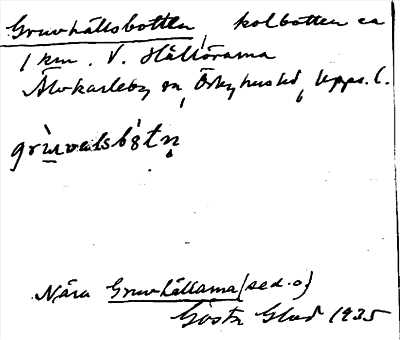 Gruvhällsbotten, kolbotten ca
1 km. V. Hällörarna
Älvkarleby sn, Örbyhus hd, Upps. l.
grùvalsbòtn̥
Nära Gruvhällarna (se d. o)
Gösta Glad 1935